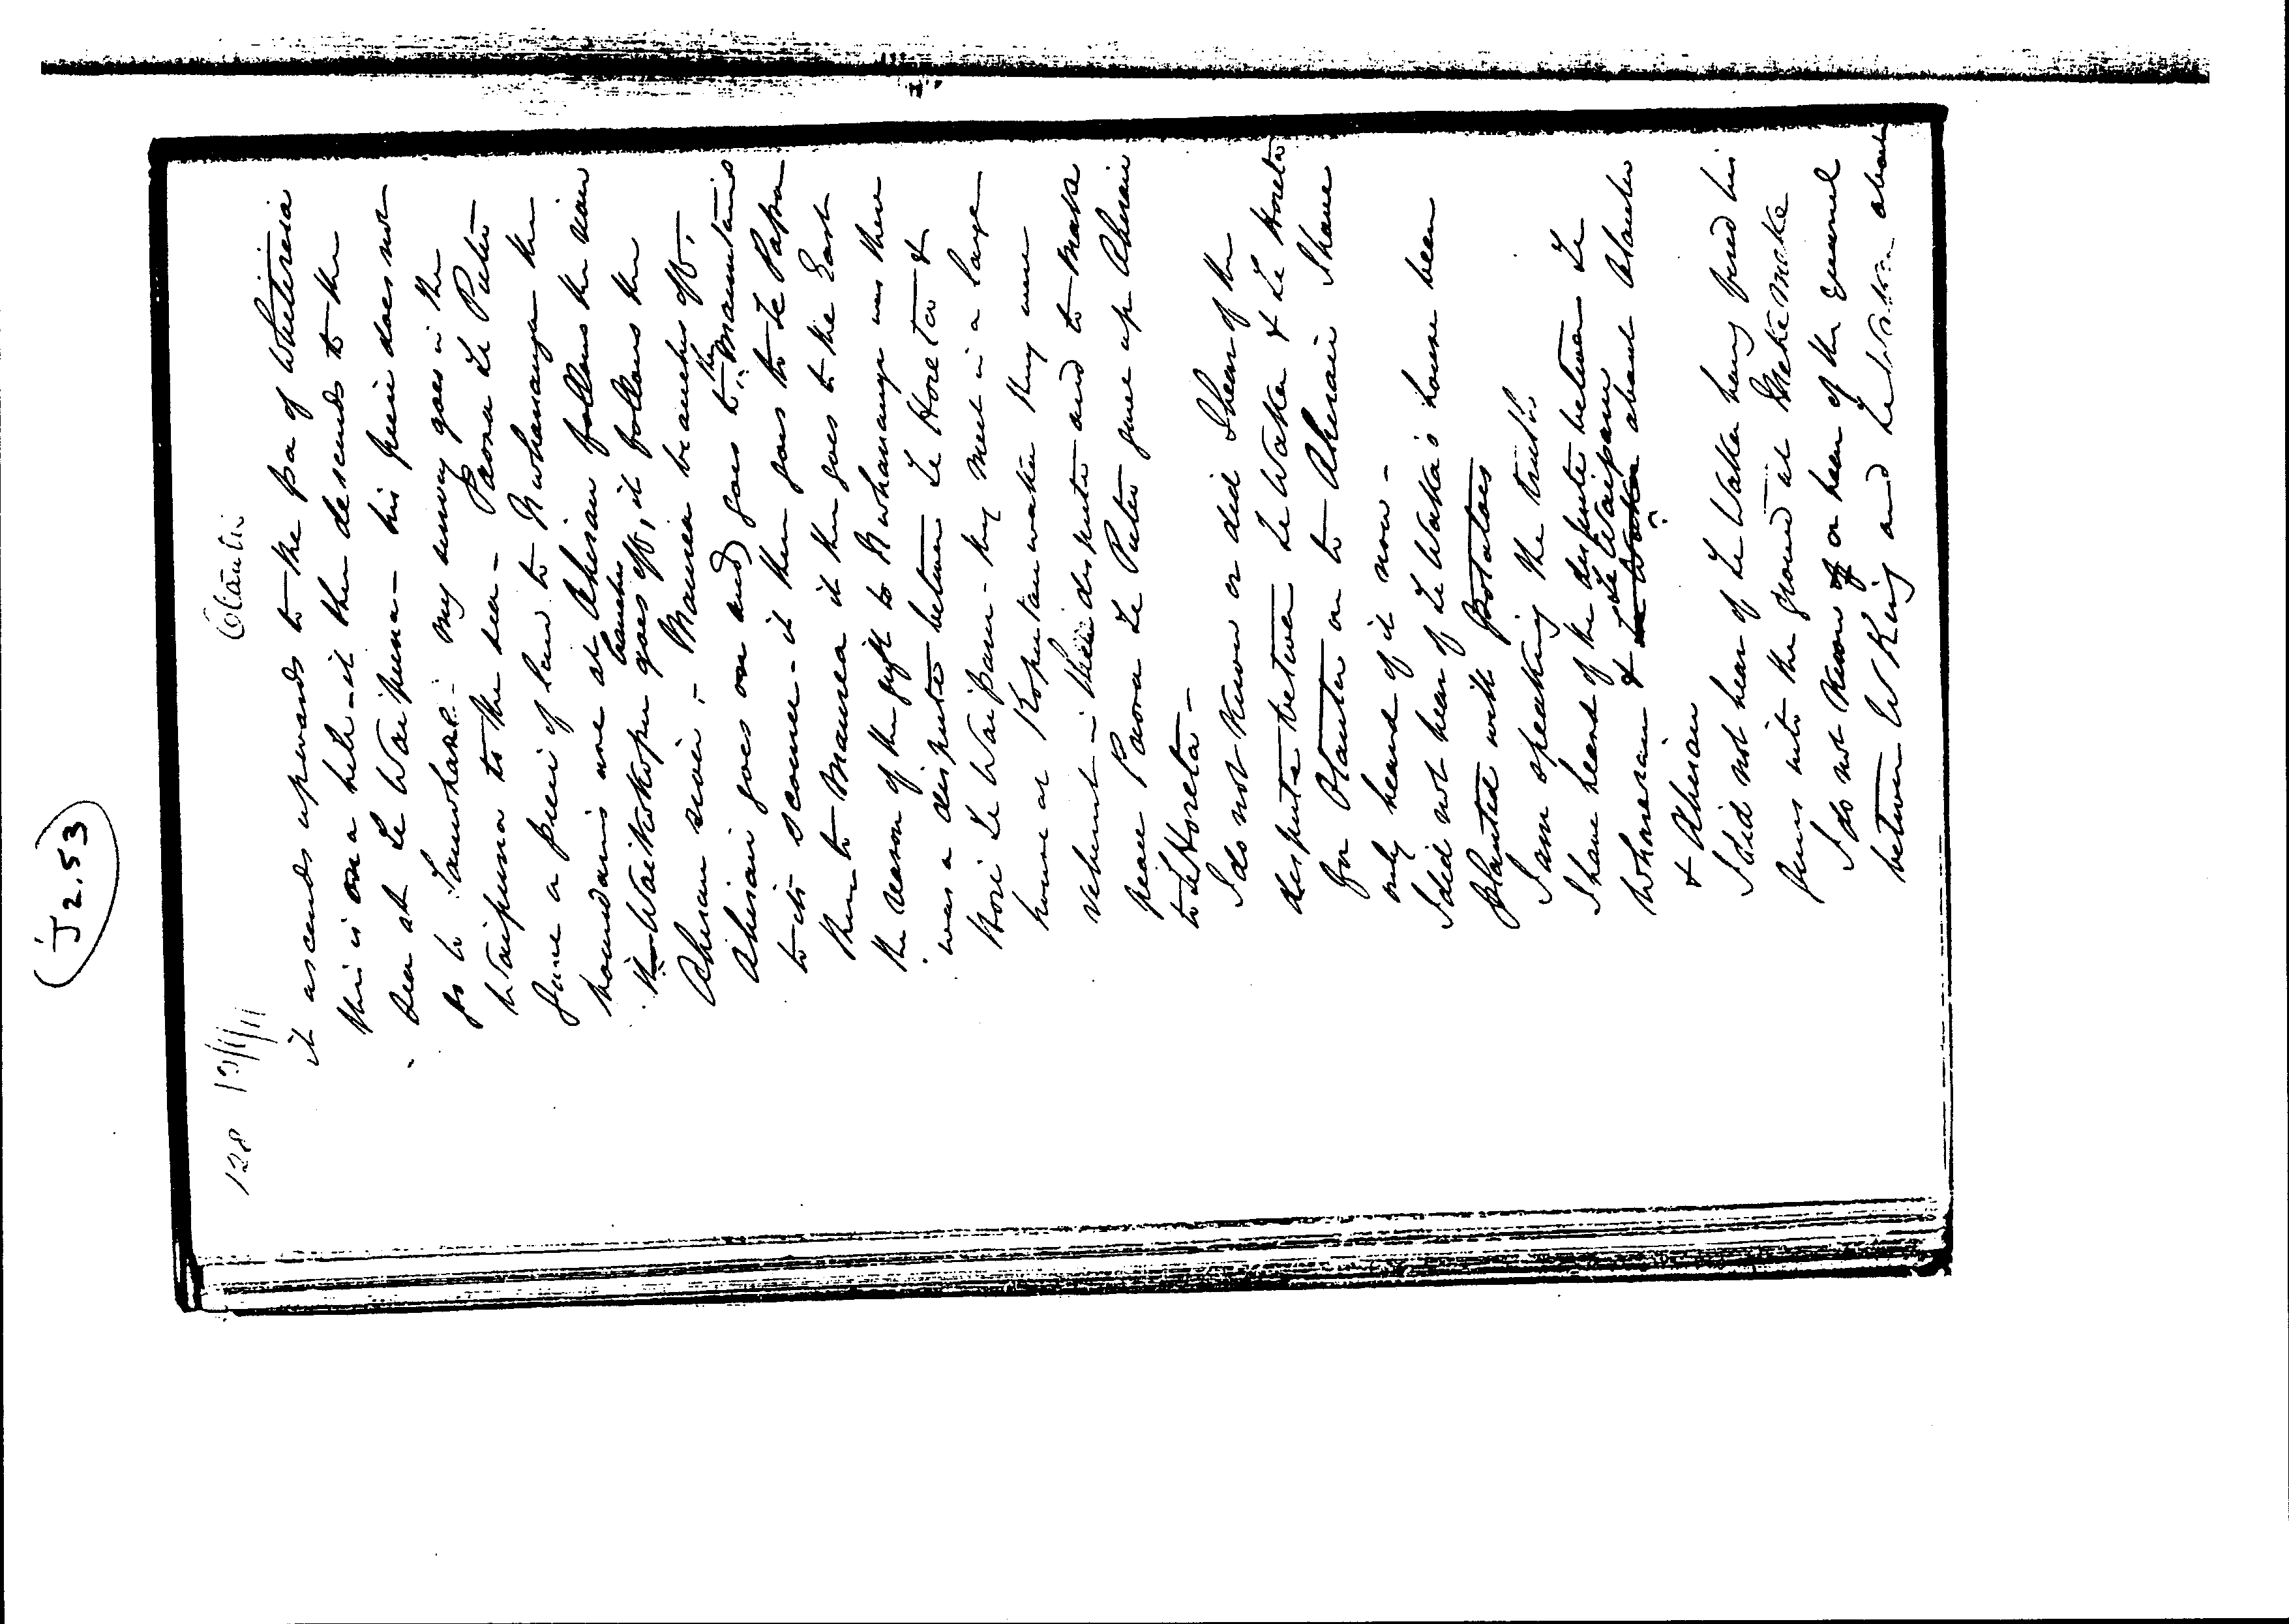 (J2.53)
128
Otautu
it ascends upwards to the pa of Whetirewia
this is on a hill - it then descends to the
sea at Te Waipuna - his piece does not
go to Tauwhare - my survey goes in the
Waipuna to the sea - Paora Te Putu
gave a piece of land to Ngwhananga the
boundaries are at Aherau follows the river
the Waikokopu branches goes off, it follows the
Aherau river - Maunea branches off,
Aherau goes on and goes to the Mountains
to its scource - it then goes to Te Papa
then to Maunea it then goes to the East
the reason of the gift to Ngwhananga was there
was a dispute between Te Horeta &
Hori Te Waiparu - they met in a large
house at Koputauwaka they were
vehement in their dispute and to make
peace Paora Te Putu gave up Aherau
to Te Horeta -
I do not know or did I hear of the
dispute between Te Waka & Te Horeta
for Otautu or to Aherau I have
only heard of it now -
I did not hear of Te Waka's house been
planted with potatoes
I am speaking the truth.
I have heard of the dispute between Te
Wharerau & Te Waka Te Waiparu about Otautu
& Aherau
I did not hear of Te Waka having fired his
guns into the ground at Mekemeke
I do not know of or hear of the quarrel
between W King and Te Waka about